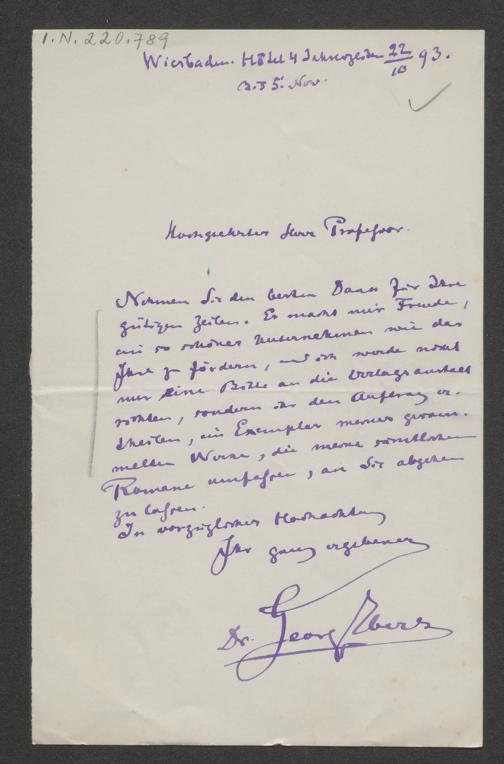 I.N. 220.789
Wiesbaden. Hôtel 4 Jahreszeiten 22/10 93.
bis 5. Nov.
Hochgeehrter Herr Profeßor.
Nehmen Sie den besten Dank für Ihre
gütigen Zeilen. Es macht mir Freude,
ein so schönes Unternehmen wie das
Ihre zu fördern, und ich werde nicht
nur eine Bitte an die Verlagsanstalt
richten, sondern ihr den Auftrag er-
theilen, ein Exemplar meiner gesam-
melten Werke, die meine sämtlichen
Romane umfaßen, an Sie abgehen
zu laßen.
In vorzüglicher Hochachtung
Ihr ganz ergebener
Dr. Georg Ebers